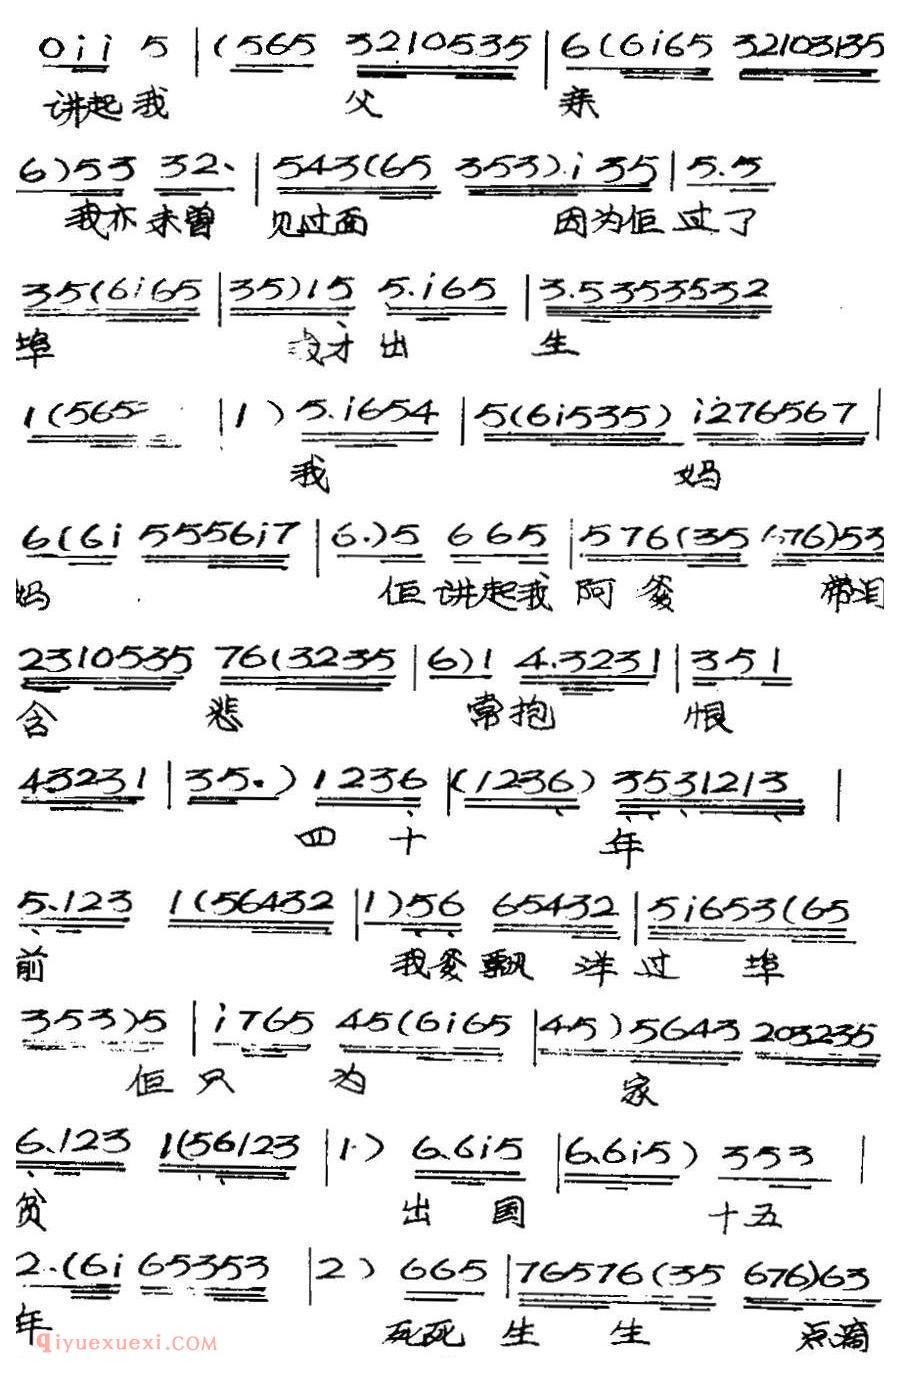 0 i i 5 | (565 3210535 | 6(6i65 32103135
讲起我 父 亲
6)53 32. | 543(65 353).i 35 | 5.5
我亦未曾 见过面 因为佢过了
35(6i65 | 35)15 5.i65 | 3.5353532
埠 我才出 生
1(565 | 1) 5.i654 | 5(6i535) i276567 |
我 妈
6(6i 5556i7 | 6.)5 665 | 576(35 676)53
妈 佢讲起我阿爹 带泪
2310535 76(3235 | 6)1 4.3231 | 351
含 悲 常抱 恨
43231 | 35.) 1236 | (1236) 3531213 |
四十 年
5.123 1(56432 | 1)56 65432 | 5i653(65
前 我爹飘洋过埠
353)5 | i765 45(6i65 | 45)5643 203235
佢只为 家
6.123 1(56123 | 1.) 6.6i5 | 6.6i5) 353 |
贫 出国 十五
2.(6i 65353 | 2) 665 | 76576(35 676)63
年 死死生生 点滴
qiyuexuexi.COM